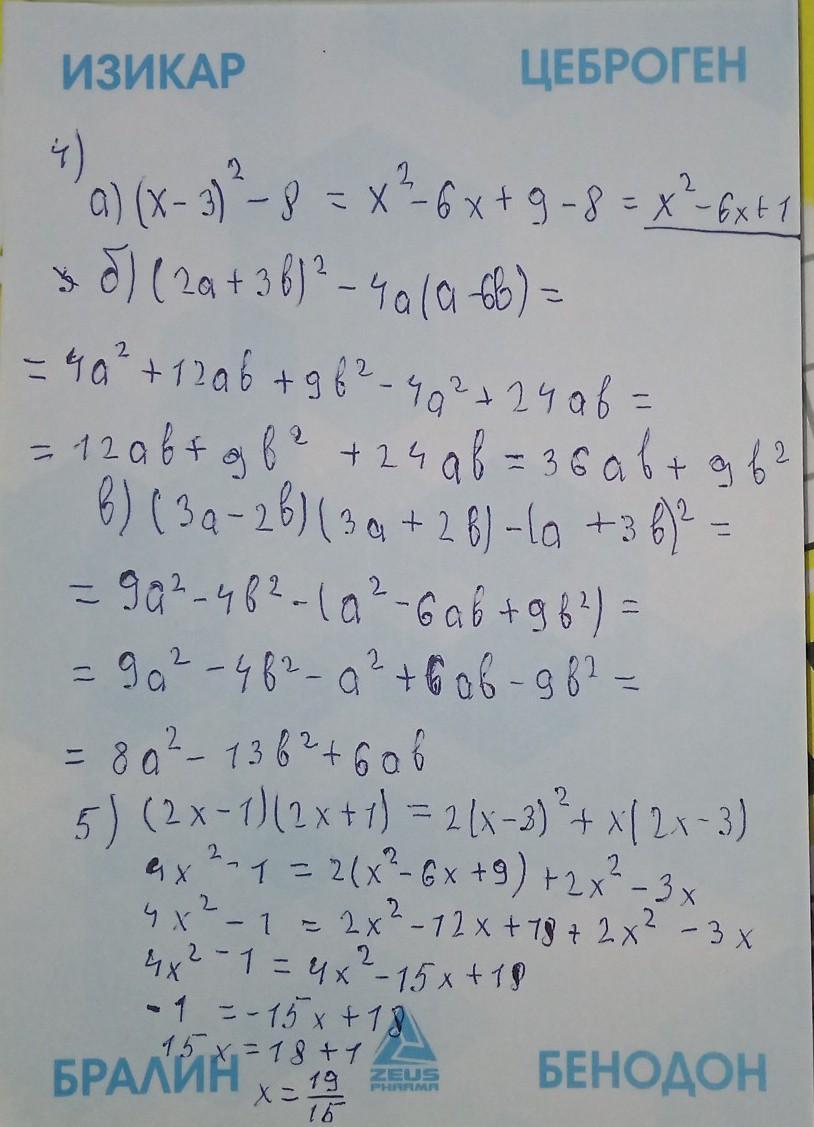 ИЗИКАР ЦЕБРОГЕН
4)
а) (x-3)² - 8 = x² - 6x + 9 - 8 = x² - 6x + 1
б) (2a + 3b)² - 4a(a - 6b) =
= 4a² + 12ab + 9b² - 4a² + 24ab =
= 12ab + 9b² + 24ab = 36ab + 9b²
в) (3a - 2b)(3a + 2b) - (a + 3b)² =
= 9a² - 4b² - (a² - 6ab + 9b²) =
= 9a² - 4b² - a² + 6ab - 9b² =
= 8a² - 13b² + 6ab
5) (2x-1)(2x+1) = 2(x-3)² + x(2x-3)
4x² - 1 = 2(x² - 6x + 9) + 2x² - 3x
4x² - 1 = 2x² - 12x + 18 + 2x² - 3x
4x² - 1 = 4x² - 15x + 18
- 1 = - 15x + 18
15x = 18 + 1
x = 19/15
БРАЛИН ZEUS PHARMA БЕНОДОН